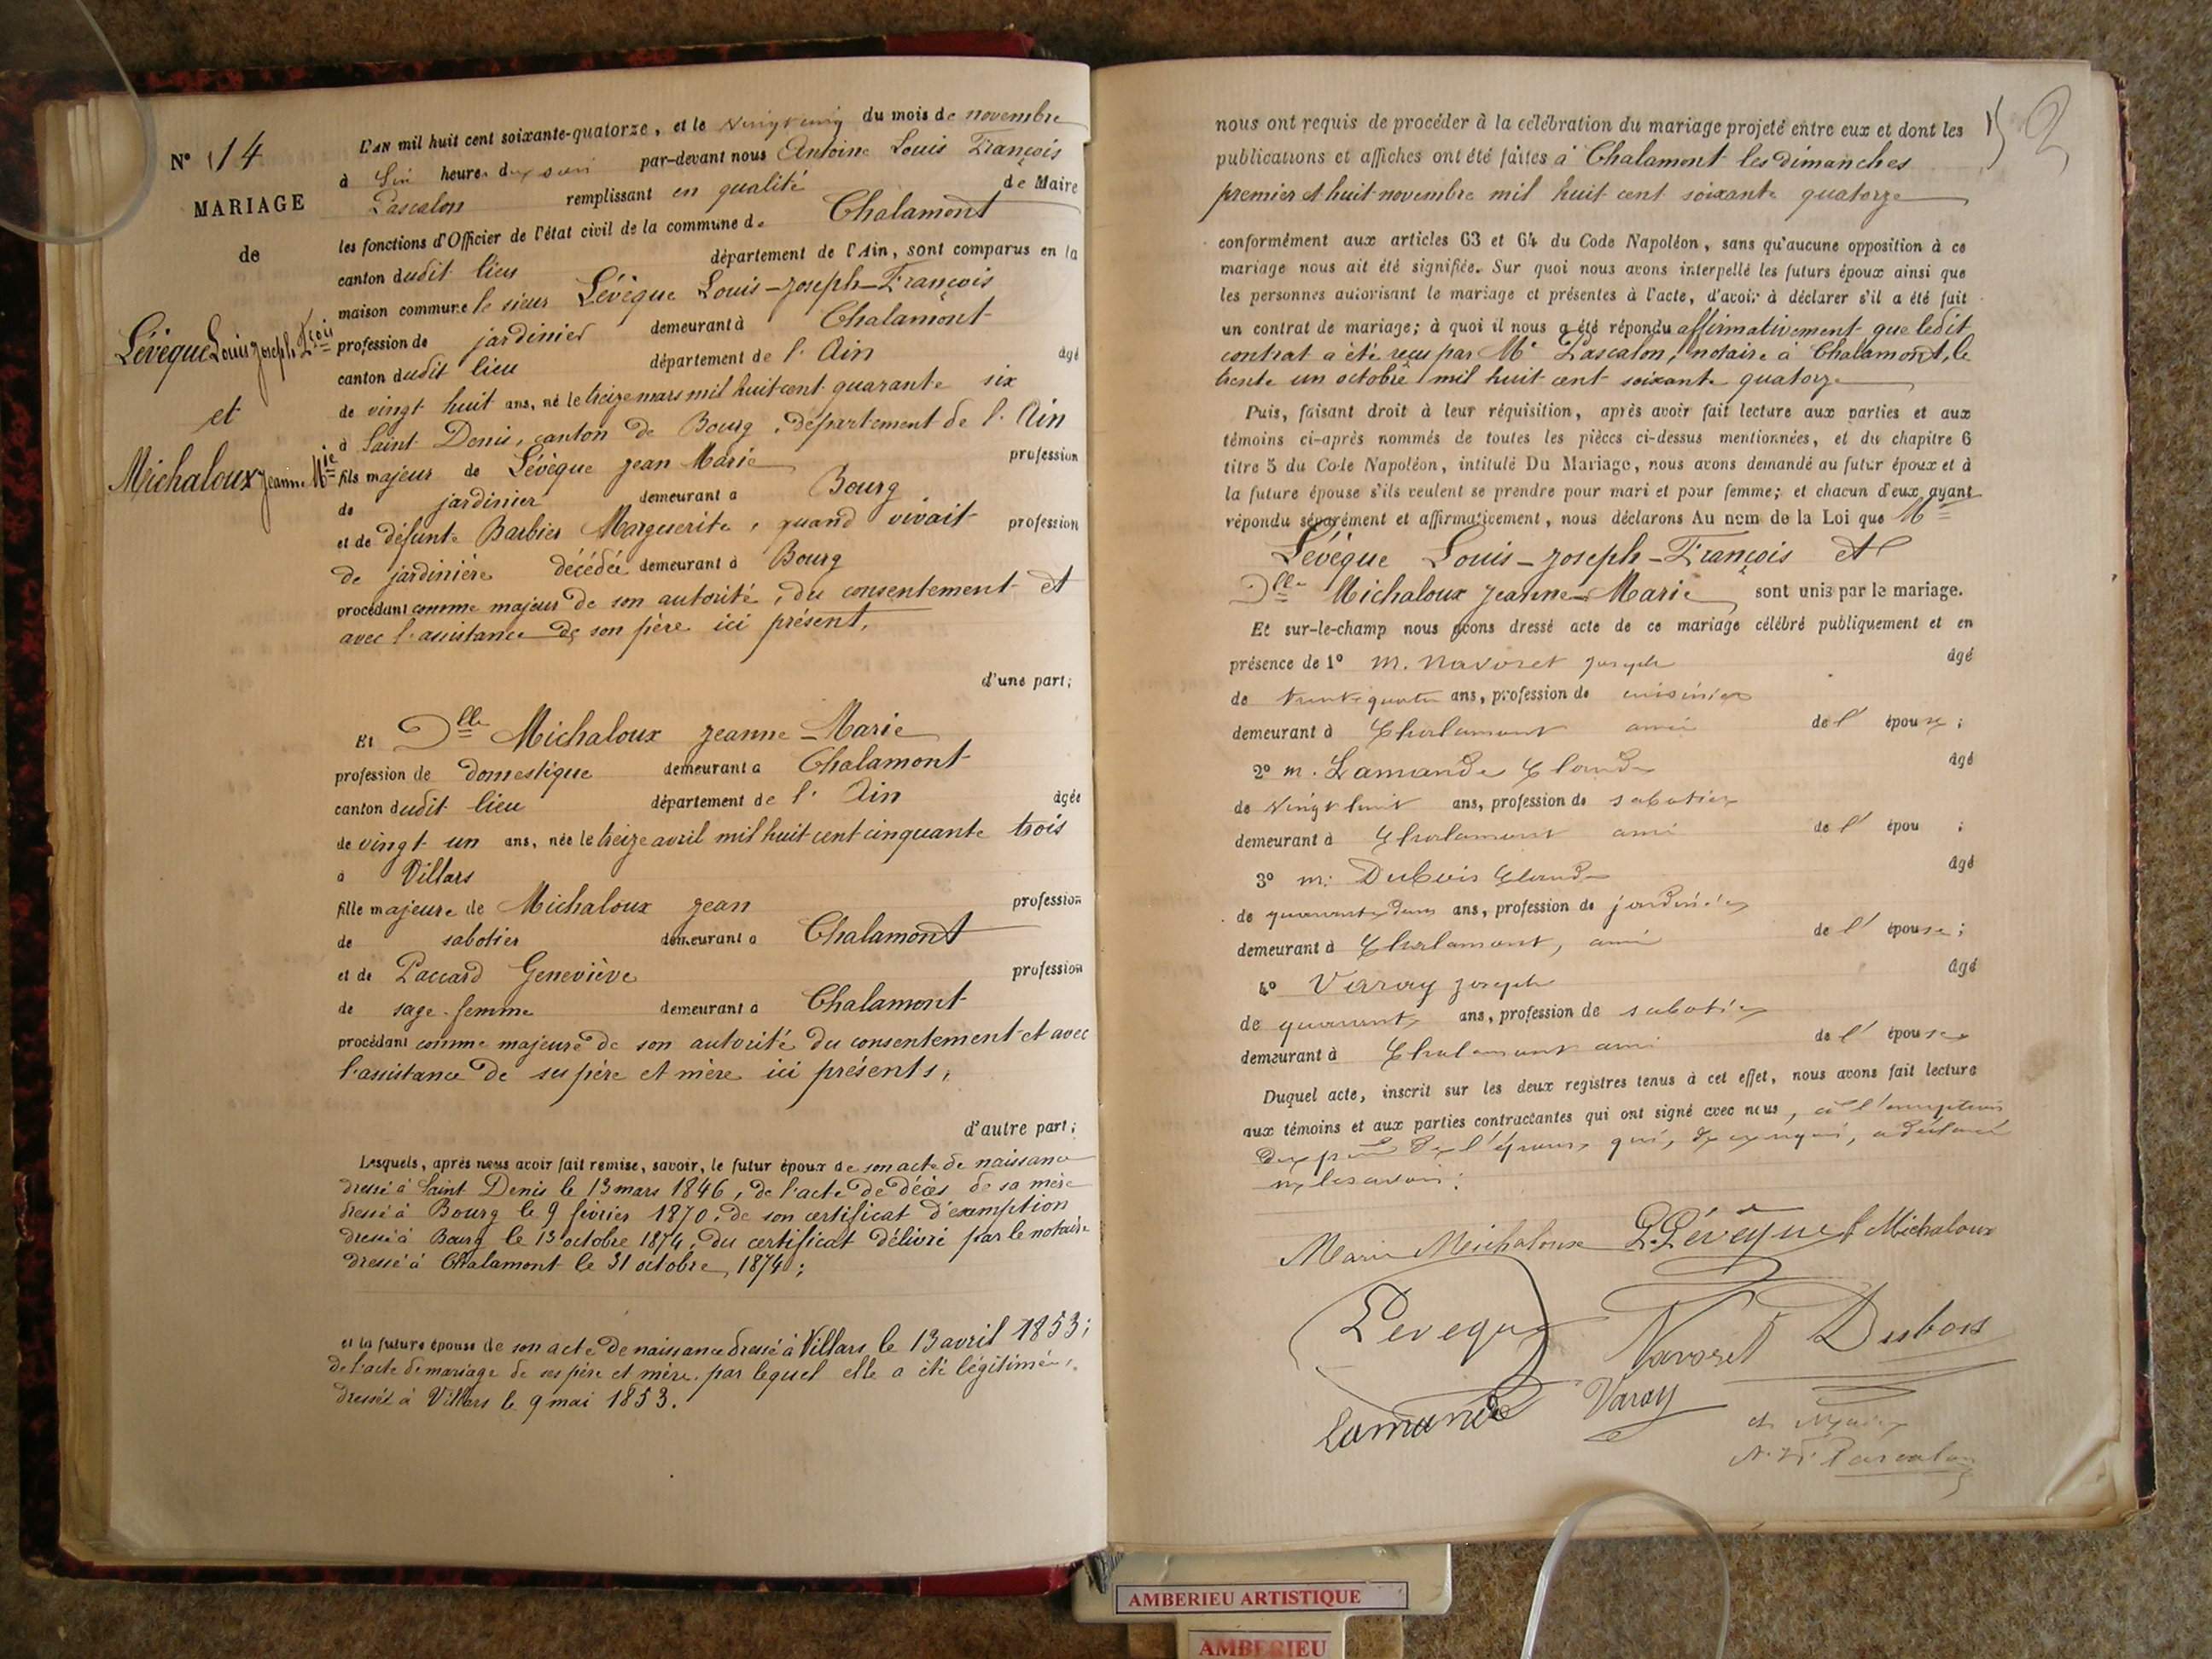 N° 14
MARIAGE
de
Lévèque Louis Joseph Fçois
et
Michaloux Jeanne Mie
L'AN mil huit cent soixante-quatorze, et le vingt cinq du mois de novembre
à six heures du soir par-devant nous Antoine Louis François
Pascalon remplissant en qualité de Maire
les fonctions d'Officier de l'état civil de la commune de Chalamont
canton dudit lieu département de l'Ain, sont comparus en la
maison commune le sieur Lévèque Louis-Joseph-François
profession de jardinier demeurant à Chalamont
canton dudit lieu département de l'Ain âgé
de vingt huit ans, né le treize mars mil huit cent quarante six
à Saint Denis, canton de Bourg, département de l'Ain
fils majeur de Lévèque Jean Marie profession
de jardinier demeurant à Bourg
et de défunte Barbier Marguerite, quand vivait profession
de jardinière décédée demeurant à Bourg
procédant comme majeur de son autorité, du consentement et
avec l'assistance de son père ici présent,
d'une part;
Et Dlle Michaloux Jeanne-Marie
profession de domestique demeurant à Chalamont
canton dudit lieu département de l'Ain âgée
de vingt un ans, née le treize avril mil huit cent cinquante trois
à Villars
fille majeure de Michaloux Jean profession
de sabotier demeurant à Chalamont
et de Paccard Geneviève profession
de sage-femme demeurant à Chalamont
procédant comme majeure de son autorité du consentement et avec
l'assistance de ses père et mère ici présents,
d'autre part;
Lesquels, après nous avoir fait remise, savoir, le futur époux de son acte de naissance
dressé à Saint Denis le 13 mars 1846, de l'acte de décès de sa mère
dressé à Bourg le 9 février 1870, de son certificat d'exemption
dressé à Bourg le 13 octobre 1874, du certificat délivré par le notaire
dressé à Chalamont le 31 octobre 1874;
et la future épouse de son acte de naissance dressé à Villars le 13 avril 1853;
de l'acte de mariage de ses père et mère par lequel elle a été légitimée,
dressé à Villars le 9 mai 1853.
nous ont requis de procéder à la célébration du mariage projeté entre eux et dont les
publications et affiches ont été faites à Chalamont les dimanches
premier et huit novembre mil huit cent soixante quatorze
conformément aux articles 63 et 64 du Code Napoléon, sans qu'aucune opposition à ce
mariage nous ait été signifiée. Sur quoi nous avons interpellé les futurs époux ainsi que
les personnes autorisant le mariage et présentes à l'acte, d'avoir à déclarer s'il a été fait
un contrat de mariage; à quoi il nous a été répondu affirmativement que ledit
contrat a été reçu par Me Pascalon, notaire à Chalamont, le
trente un octobre mil huit cent soixante quatorze
Puis, faisant droit à leur réquisition, après avoir fait lecture aux parties et aux
témoins ci-après nommés de toutes les pièces ci-dessus mentionnées, et du chapitre 6
titre 5 du Code Napoléon, intitulé Du Mariage, nous avons demandé au futur époux et à
la future épouse s'ils veulent se prendre pour mari et pour femme; et chacun d'eux ayant
répondu séparément et affirmativement, nous déclarons Au nom de la Loi que Mr
Lévèque Louis-Joseph-François et
Dlle Michaloux Jeanne-Marie sont unis par le mariage.
Et sur-le-champ nous avons dressé acte de ce mariage célébré publiquement et en
présence de 1° M. Navoret Joseph âgé
de trente quatre ans, profession de cuisinier
demeurant à Chalamont ami de l'épouse;
2° M. Lamande Claude âgé
de vingt huit ans, profession de sabotier
demeurant à Chalamont ami de l'épou ;
3° M. Dubois Claude âgé
de quarante deux ans, profession de jardinier
demeurant à Chalamont, ami de l'épouse;
4° Varay Joseph âgé
de quarante ans, profession de sabotier
demeurant à Chalamont ami de l'épouse
Duquel acte, inscrit sur les deux registres tenus à cet effet, nous avons fait lecture
aux témoins et aux parties contractantes qui ont signé avec nous, à l'exception
du père de l'épouse, qui, de ce requis, a déclaré
ne le savoir.
Marie Michaloux L. Lévêque f Michaloux
Leveque Navoret Dubois
Lamande Varay
Pascalon
AMBERIEU ARTISTIQUE
AMBERIEU